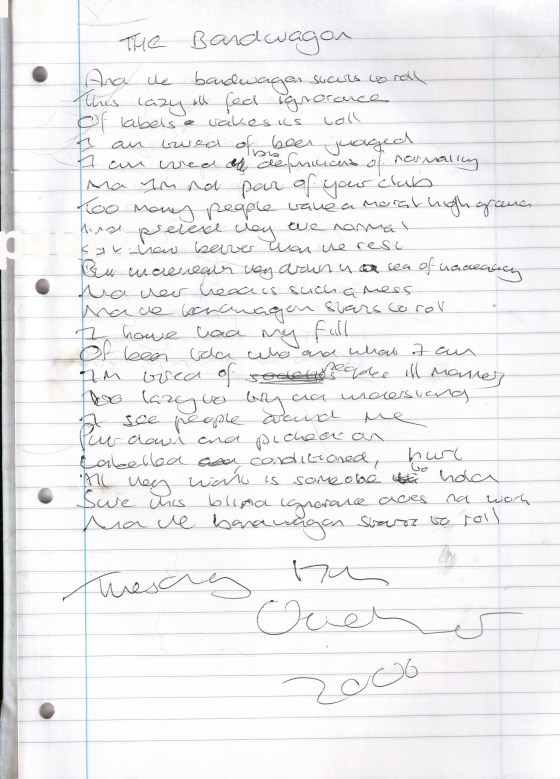 THE Bandwagon
And the bandwagon starts to roll
This lazy ill fed ignorance
Of labels takes its toll
I am tired of been judged
I am tired of this definitions of normality
And Im not part of your club
Too many people take a moral high ground
And pretend they are normal
some how better than the rest
But underneath they drown in a sea of inadequacy
And their head is such a mess
And the bandwagon starts to roll
I have had my full
Of been told who and what I am
Im tired of peoples ill manners
Too lazy to try and understand
I see people around me
Put down and picked on
Labelled conditioned, hurt
All they want is someone to hold
Sure this blind ignorance does not work
And the bandwagon starts to roll
Tuesday
October
2006